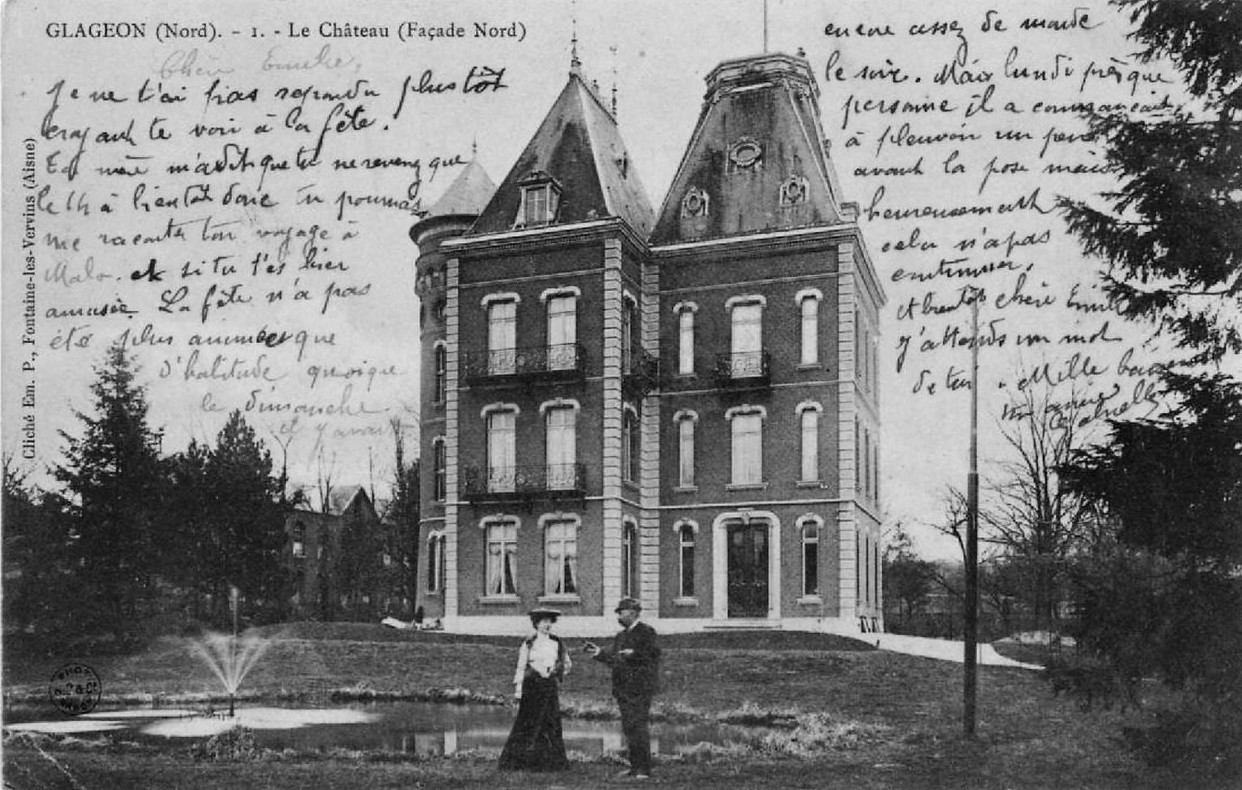 GLAGEON (Nord). - 1. - Le Château (Façade Nord)
Cliché Em. P., Fontaine-les-Vervins (Aisne)
Chère Emilie,
Je ne t'ai pas répondu plus tôt
croyant te voir à la fête.
Ta mère m'a dit que tu ne revenez que
le à bientôt donc tu pourras
me raconter ton voyage à
Malo. et si tu t'es bien
amusée. La fête n'a pas
été plus animée que
d'habitude quoique
le dimanche
il y avait
encore assez de monde
le soir. Mais lundi presque
personne il a commencait
à pleuvoir un peu
avant la pose mais
heureusement
cela n'a pas
continuer.
et bientôt chère Emilie
j'attends un mot
de toi. Mille baisers
amie